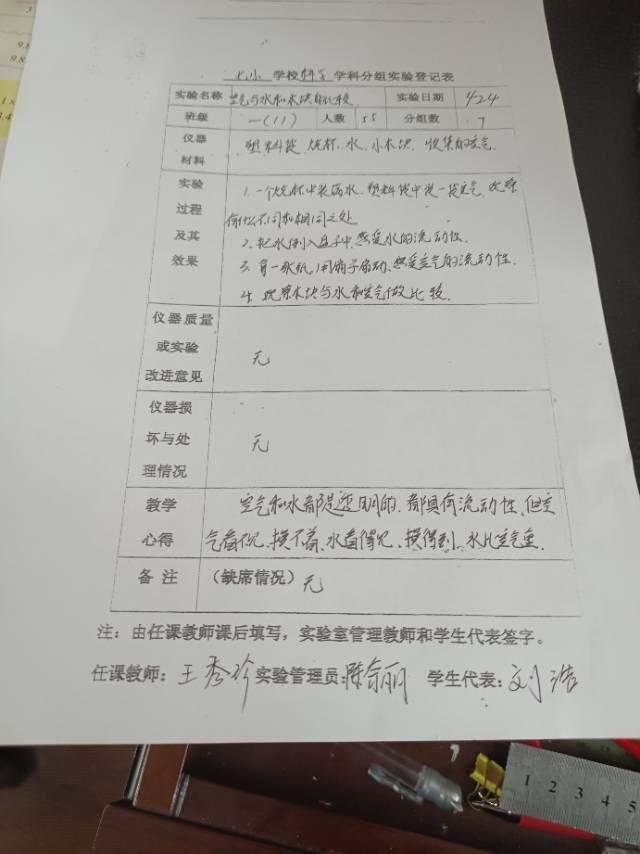 七小 学校科学学科分组实验登记表
实验名称 空气与水和木块的比较 实验日期 4/24
班级 一(11) 人数 55 分组数 7
仪器
材料
塑料袋、烧杯、水、小木块、收集的空气.
实验
过程
及其
效果
1. 一个烧杯中装满水、塑料袋中装一袋空气、观察
有什么不同和相同之处
2. 把水倒入盘子中,感受水的流动性.
3. 剪一张纸,用扇子扇动,感受空气的流动性.
4. 观察木块与水和空气做比较.
仪器质量
或实验
改进意见
无
仪器损
坏与处
理情况
无
教学
心得
空气和水都是透明的、都具有流动性、但空
气看不见、摸不着、水看得见、摸得到、水比空气重.
备 注 (缺席情况)无
注:由任课教师课后填写,实验室管理教师和学生代表签字。
任课教师:王秀珍 实验管理员:陈 丽 学生代表:刘浩
1 2 3 4 5